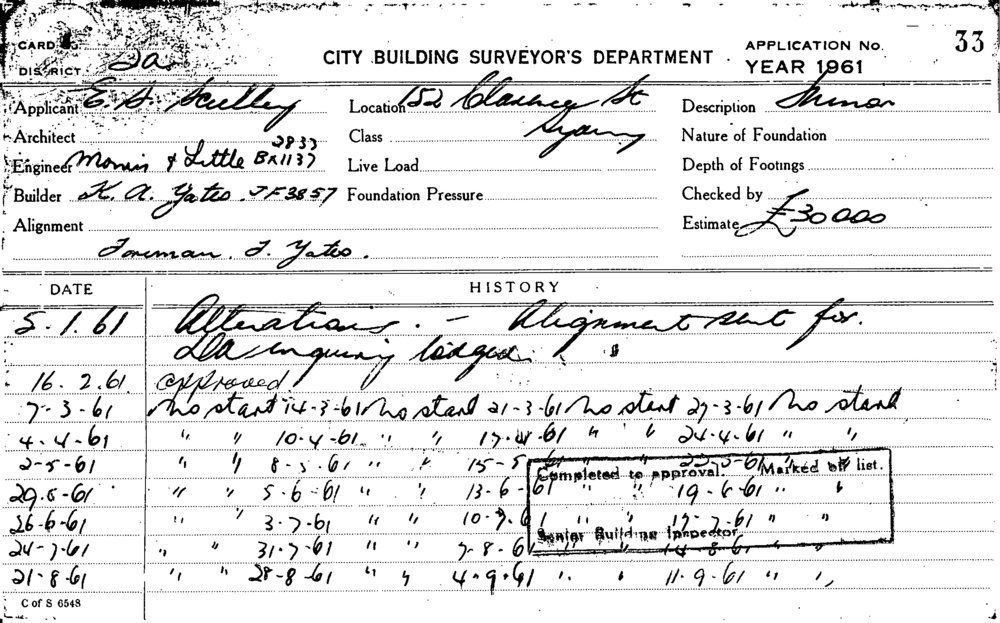 CARD
DISTRICT 2a.
CITY BUILDING SURVEYOR'S DEPARTMENT
APPLICATION No. 33
YEAR 1961
Applicant E. S. Scelley
Location 152 Clarence St
Description Minor
Architect 2833
Class Sydney
Nature of Foundation
Engineer Morris & Little BX1137
Live Load
Depth of Footings
Builder K. A. Yates. JF3857
Foundation Pressure
Checked by
Alignment
Estimate £30000
Foreman. J. Yates.
DATE HISTORY
5.1.61 Alterations. - Alignment sent for.
DA enquiry lodged. "
16.2.61. approved
7-3-61 No start 14-3-61 No start 21-3-61 No start 27-3-61 No start
4-4-61 " " 10-4-61 " " 17-4-61 " " 24-4-61 " "
2-5-61 " " 8-5-61 " " 15-5-61 22-5-61 "
29.5-61 " " 5-6-61 " " 13-6-61 " " 19-6-61 " "
26-6-61 " " 3-7-61 " " 10-7-61 " " 17-7-61 " "
24-7-61 " " 31-7-61 " " 7-8-61 " 14-8-61
21-8-61 " " 28-8-61 " " 4-9-61 " " 11-9-61 " "
Completed to approval. Marked off list.
Senior Building Inspector
C of S 6548